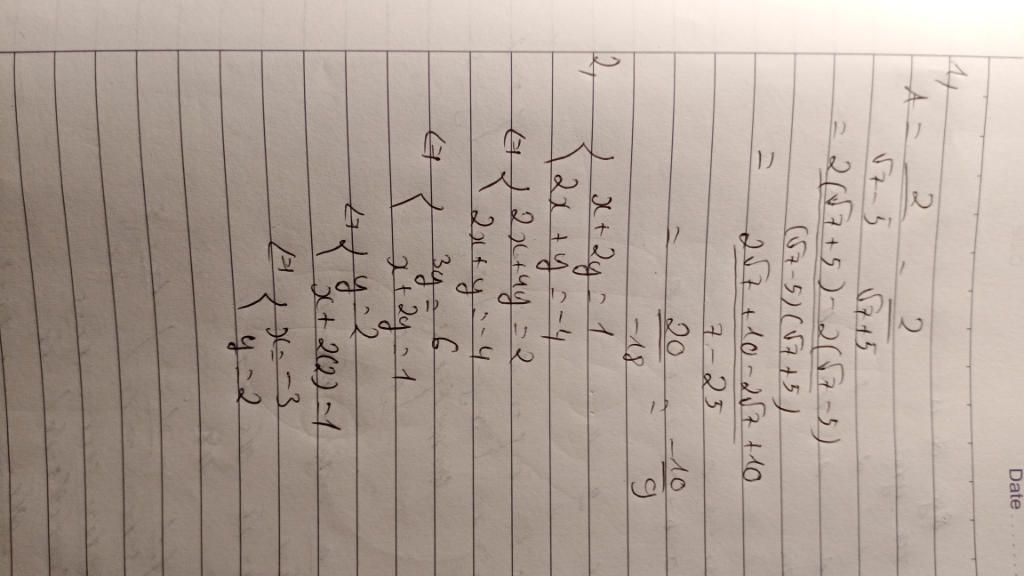 Date ......
1,
A = 2/(√7-5) - 2/(√7+5)
= (2(√7+5)-2(√7-5))/((√7-5)(√7+5))
= (2√7+10-2√7+10)/(7-25)
= 20/-18 = -10/9
2,
{ x+2y=1
2x+y=-4
<=> { 2x+4y=2
2x+y=-4
<=> { 3y=6
x+2y=1
<=> { y=2
x+2(2)=1
<=> { x=-3
y=2